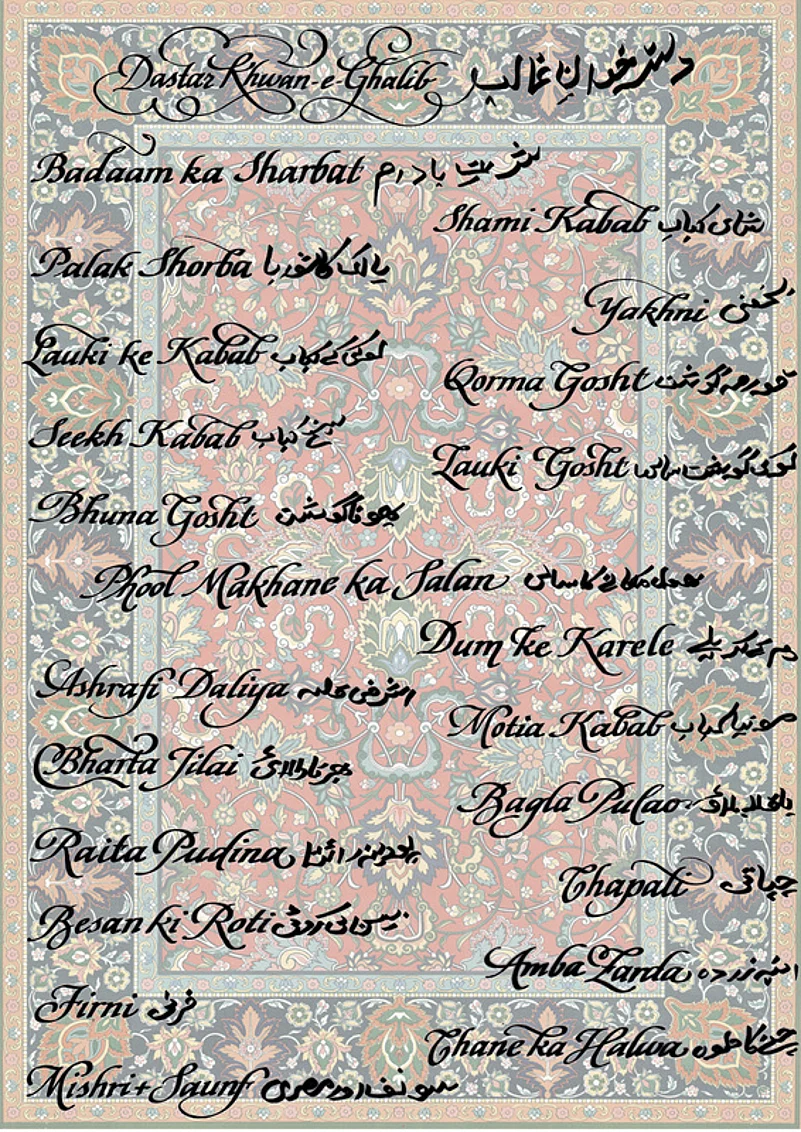 Dastar Khwan-e-Ghalib دسترخوانِ غالب
Badaam ka Sharbat شربت بادام
Shami Kabab شامی کباب
Palak Shorba پالک کا شوربا
Yakhni یخنی
Lauki ke Kabab لوکی کے کباب
Qorma Gosht قورمہ گوشت
Seekh Kabab سیخ کباب
Lauki Gosht لوکی گوشت
Bhuna Gosht بھونا گوشت
Phool Makhane ka Salan پھول مکھانے کا سالن
Dum ke Karele دم کے کریلے
Ashrafi Daliya اشرفی
Motia Kabab کباب
Bharta Jilai بھرتا
Bagla Pulao پلاؤ
Raita Pudina پودینہ رائتا
Chapati چپاتی
Besan ki Roti بیسن کی روٹی
Amba Zarda انبہ زردہ
Firni فرنی
Chane ka Halwa چنے کا حلوہ
Mishri + Saunf سونف اور مصری